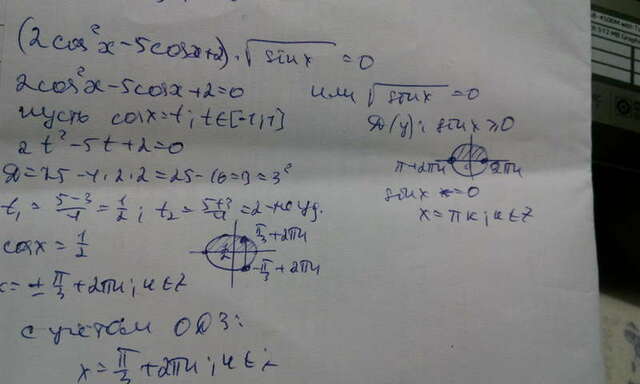 (2cos²x-5cosx+2)·√sinx=0
2cos²x-5cosx+2=0 или √sinx=0
пусть cosx=t; t∈[-1;1]
2t²-5t+2=0
D=25-4·2·2=25-16=9=3²
t₁=(5-3)/4=1/2; t₂=(5+3)/4=2-не уд.
cosx=1/2
x=±π/3+2πn; n∈Z
π/3+2πn
1/2
-π/3+2πn
D(y): sinx≥0
π+2πn 2πn
sinx=0
x=πk; k∈Z
с учетом ОДЗ:
x=π/3+2πn; n∈Z